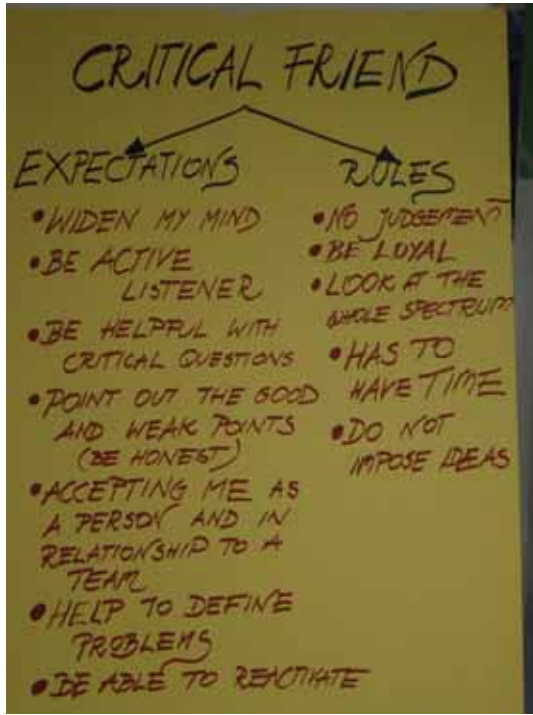 CRITICAL FRIEND
EXPECTATIONS
• WIDEN MY MIND
• BE ACTIVE
LISTENER
• BE HELPFUL WITH
CRITICAL QUESTIONS
• POINT OUT THE GOOD
AND WEAK POINTS
(BE HONEST)
• ACCEPTING ME AS
A PERSON AND IN
RELATIONSHIP TO A
TEAM
• HELP TO DEFINE
PROBLEMS
• BE ABLE TO REACTIVATE
RULES
• NO JUDGEMENT
• BE LOYAL
• LOOK AT THE
WHOLE SPECTRUM
• HAS TO
HAVE TIME
• DO NOT
IMPOSE IDEAS